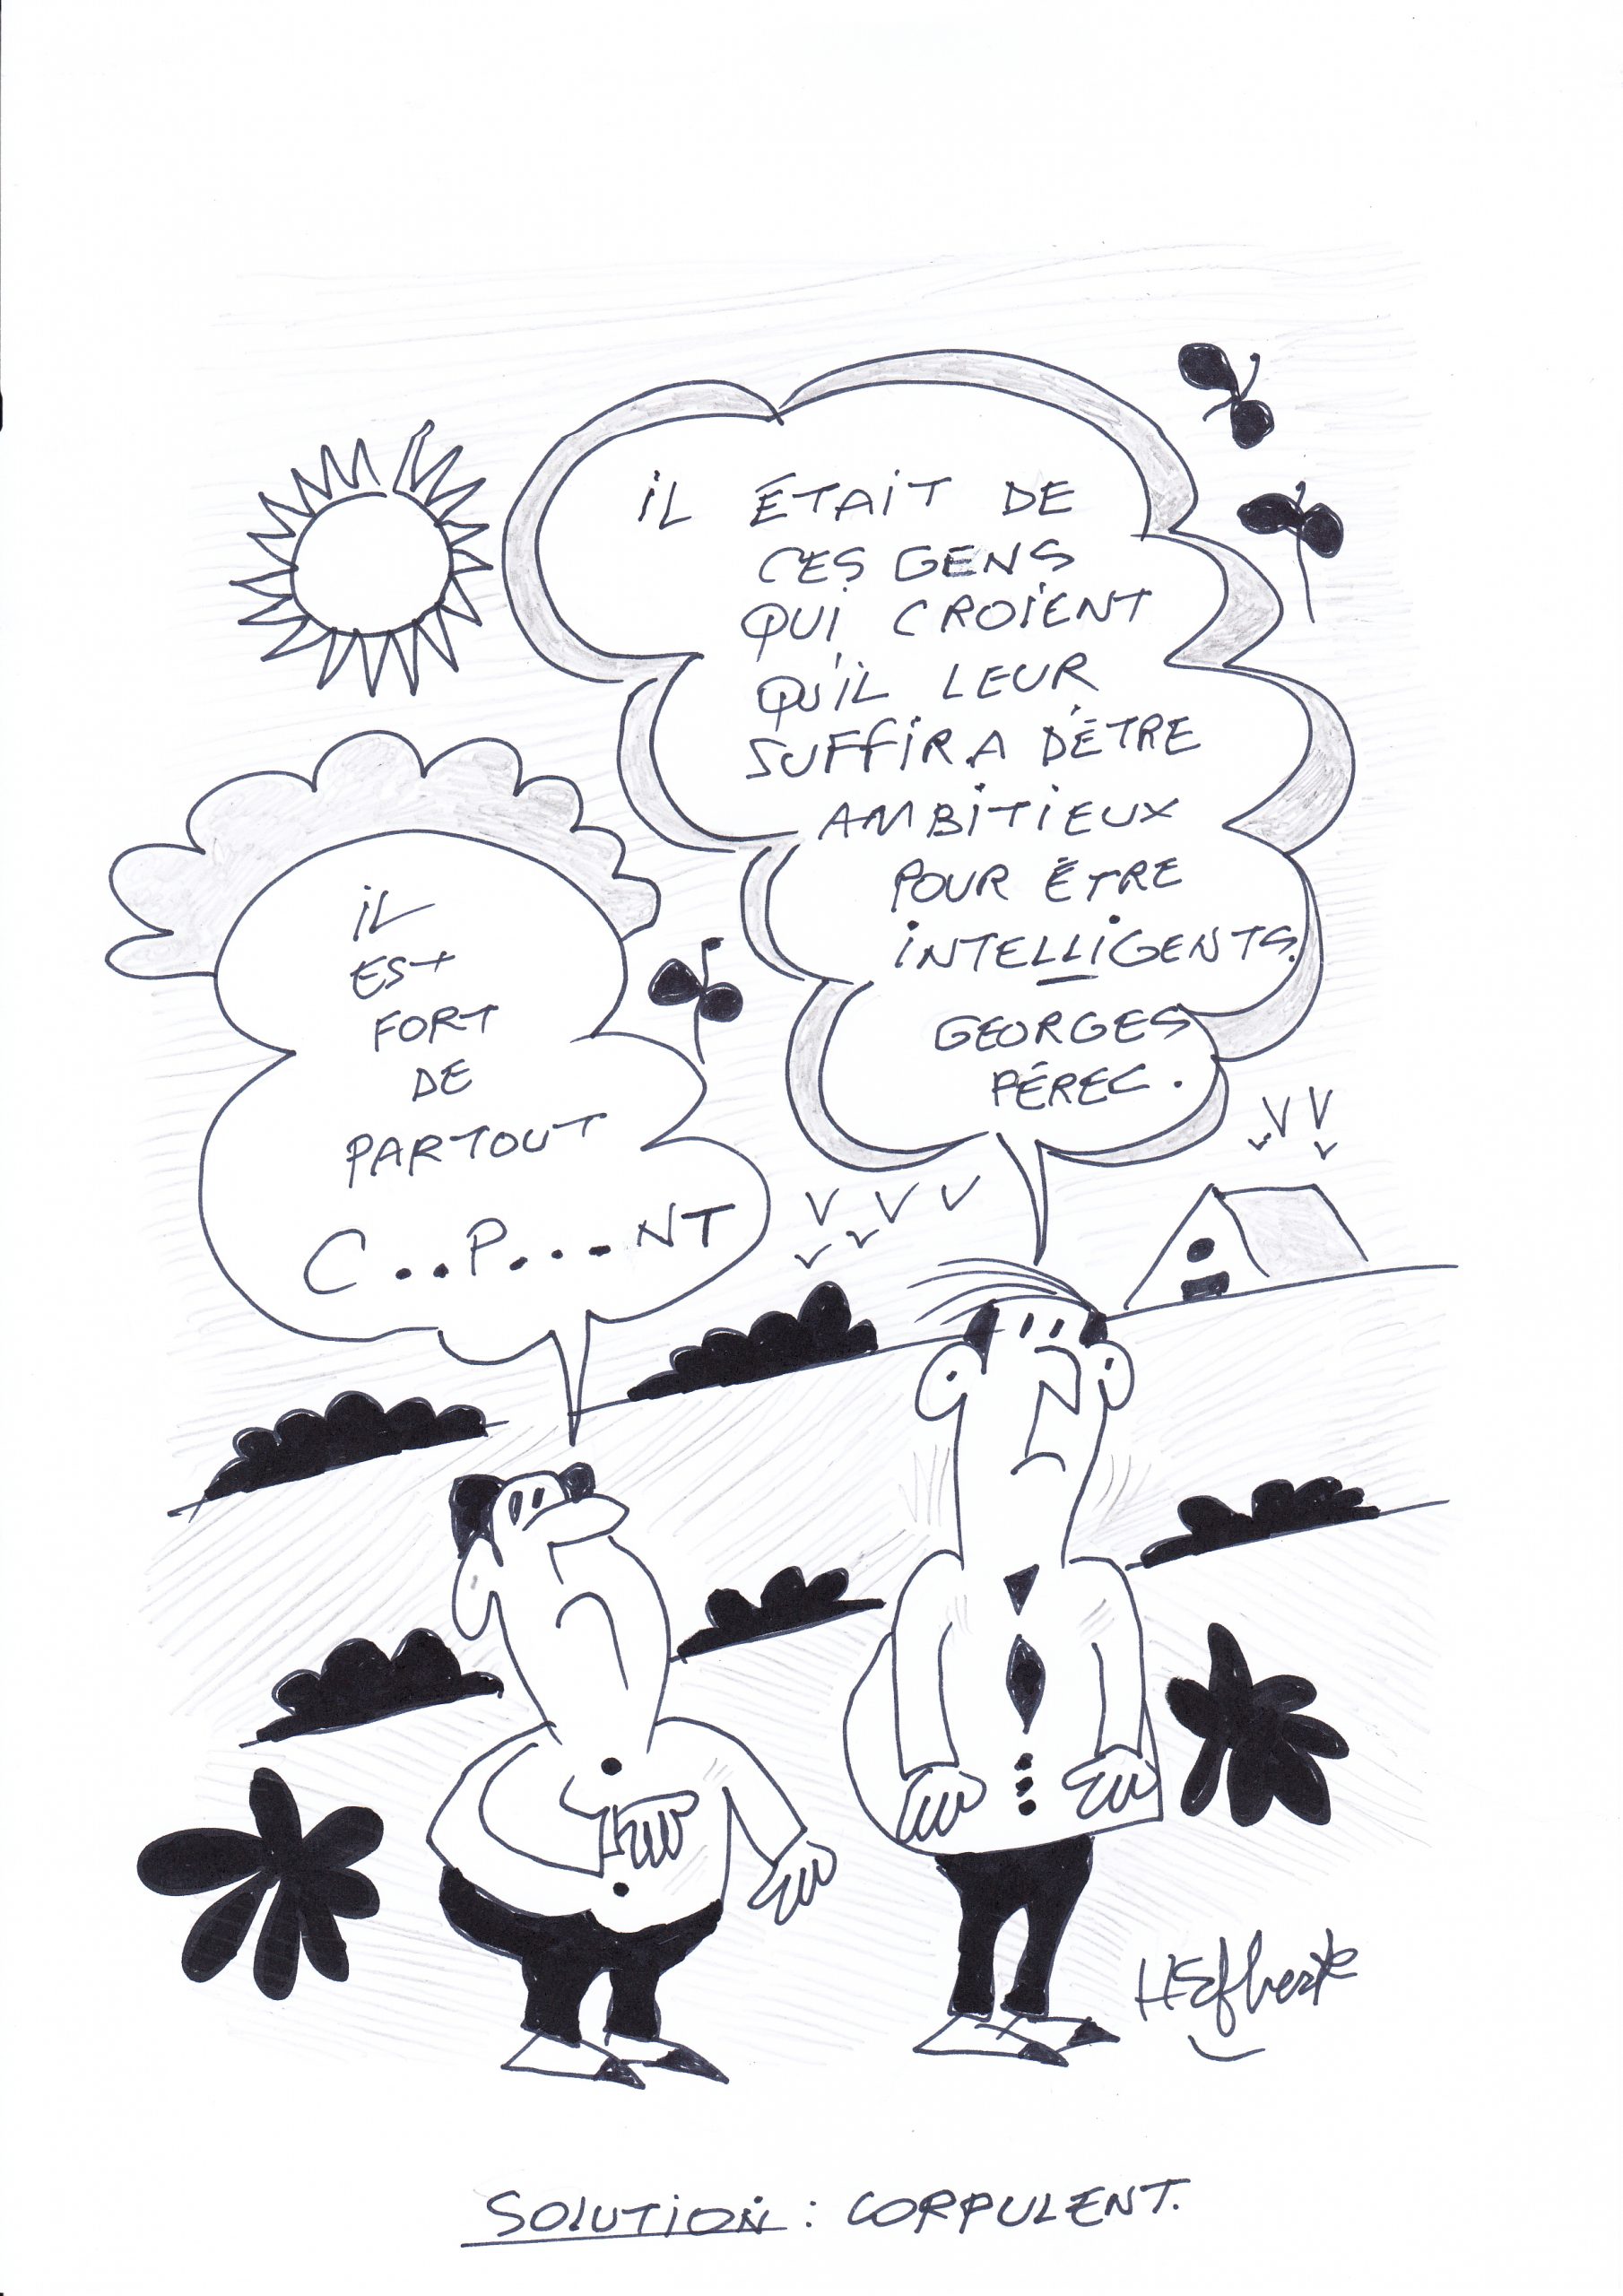 IL ÉTAIT DE
CES GENS
QUI CROIENT
QU'IL LEUR
SUFFIRA D'ÊTRE
AMBITIEUX
POUR ÊTRE
INTELLIGENTS.
GEORGES
PÉREC.
IL
EST
FORT
DE
PARTOUT
C..P...NT
SOLUTION : CORPULENT.